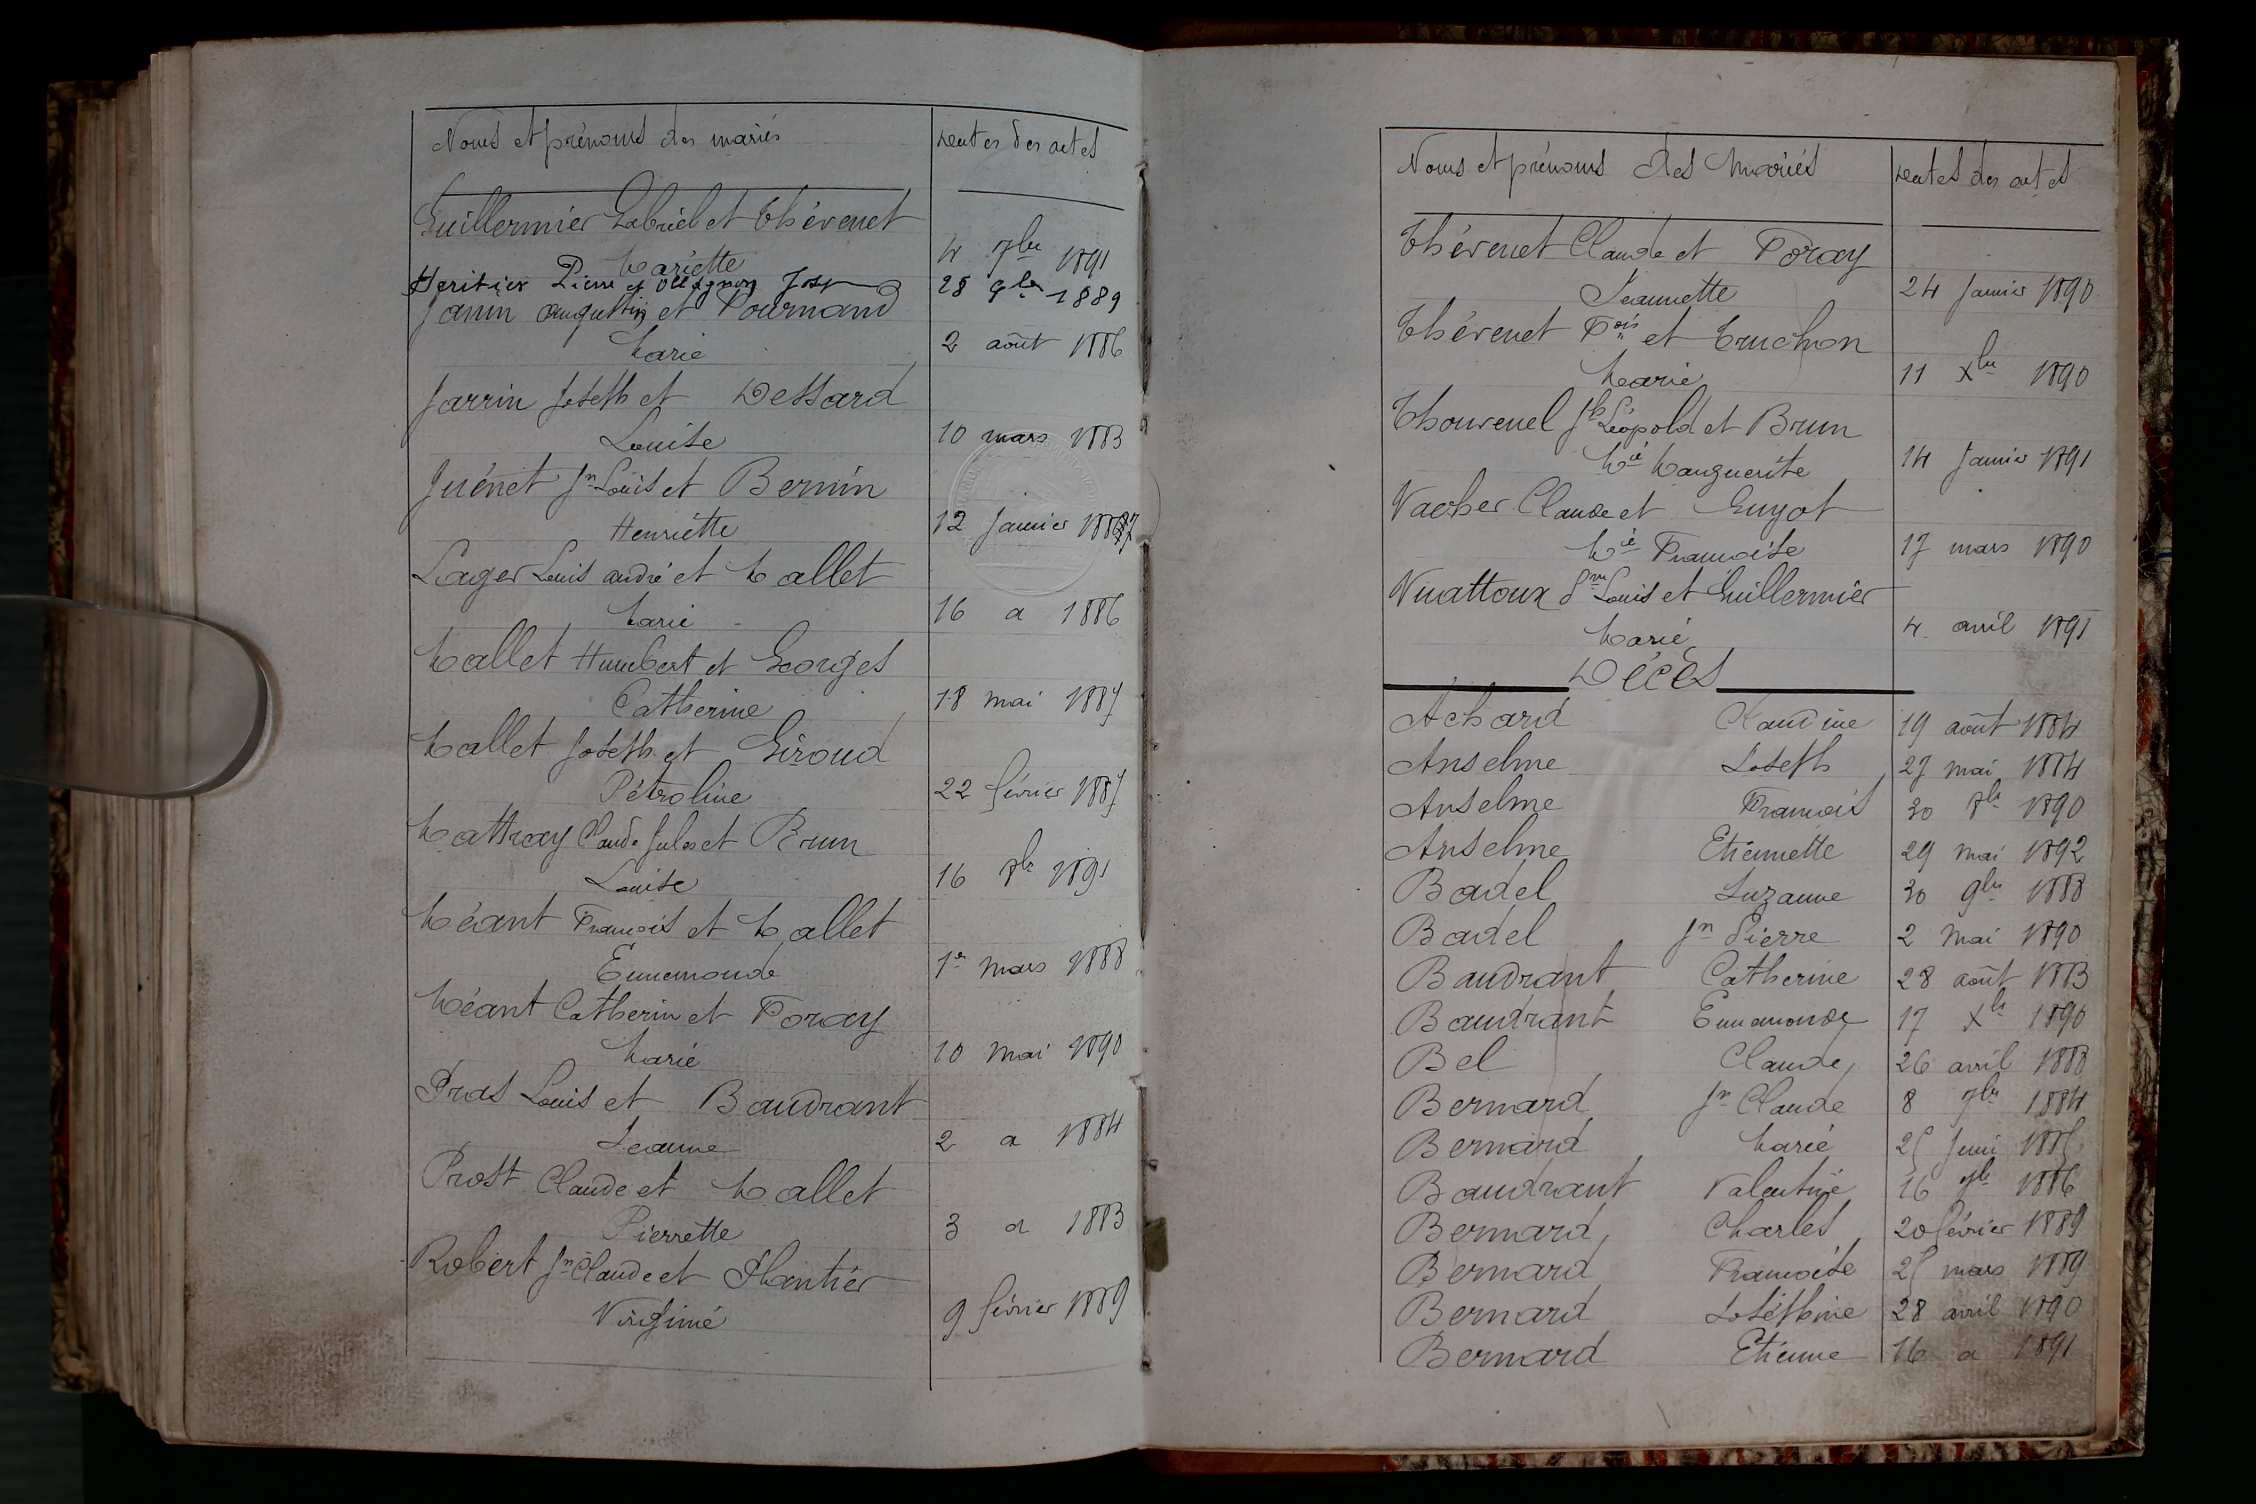 Noms et prénoms des mariés Dates des actes
Guillermier Gabriel et Thévenet
Mariette 4 7bre 1891
Heritier Pierre et Ollagnon 28 9bre 1889
Janin Augustin et Pournand
Marie 2 août 1886
Jarrin Joseph et Dessard
Louise 10 mars 1883
Juénet Jn Louis et Bernin
Henriette 12 Janvier 1887
Lager Louis André et Mallet
Marie 16 a 1886
Mallet Humbert et Georges
Catherine 18 mai 1887
Mallet Joseph et Giroud
Pétroline 22 février 1887
Mattray Claude Jules et Brun
Louise 16 8bre 1891
Méant François et Mallet
Ennemonde 1er mars 1888
Méant Catherin et Foray
Marie 10 Mai 1890
Pras Louis et Baudrant
Jeanne 2 a 1884
Prost Claude et Mallet
Pierrette 3 a 1883
Robert Jn Claude et Phantier
Virginie 9 février 1889
Noms et prénoms des Mariés Dates des actes
Thévenet Claude et Foray
Jeannette 24 Janvier 1890
Thévenet Fçois et Truchon
Marie 11 Xbre 1890
Thouvenel Jh Léopold et Brun
Mie Marguerite 14 Janvier 1891
Vacher Claude et Guyot
Mie Françoise 17 mars 1890
Vuattoux Louis et Guillermier
Marie 4 avril 1891
Décès
Achard Claudine 19 août 1884
Anselme Joseph 27 mai 1884
Anselme François 30 8bre 1890
Anselme Etiennette 29 Mai 1892
Badel Suzanne 30 9bre 1888
Badel Jn Pierre 2 Mai 1890
Baudrant Catherine 28 août 1883
Baudrant Ennemonde 17 Xbre 1890
Bel Claude 26 avril 1888
Bernard Jn Claude 8 7bre 1884
Bernard Marie 25 Juin 1885
Baudrant Valentine 16 1886
Bernard Charles 20 février 1889
Bernard Françoise 25 mars 1889
Bernard Joséphine 28 avril 1890
Bernard Etienne 16 a 1891